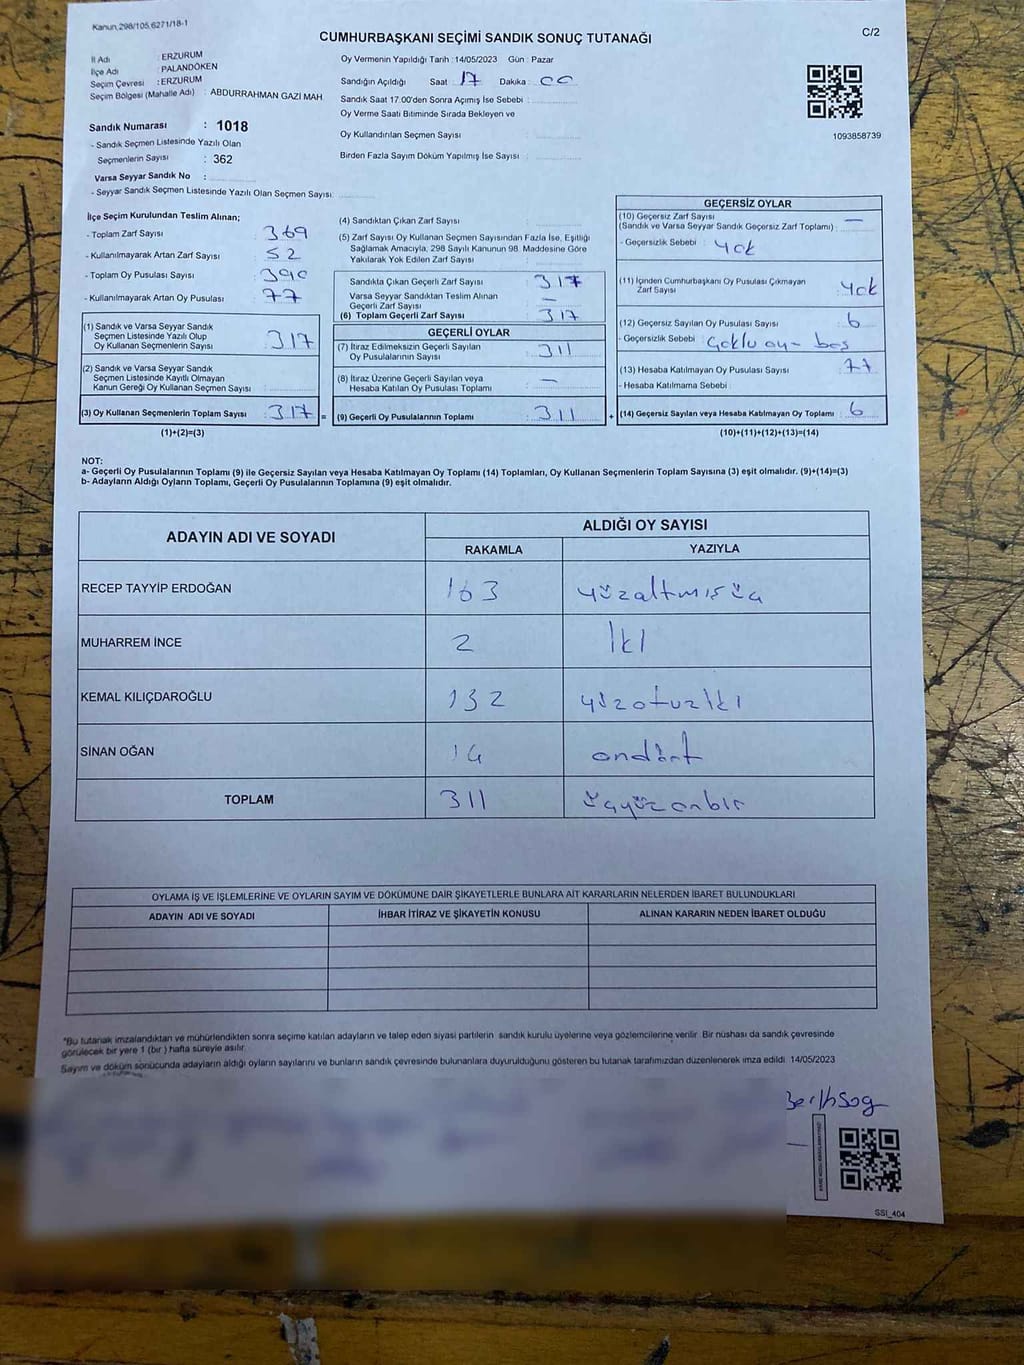 Kanun 298/105,6271/18-1
CUMHURBAŞKANI SEÇİMİ SANDIK SONUÇ TUTANAĞI
C/2
İl Adı : ERZURUM
İlçe Adı : PALANDÖKEN
Seçim Çevresi : ERZURUM
Seçim Bölgesi (Mahalle Adı) : ABDURRAHMAN GAZİ MAH.
Sandık Numarası : 1018
- Sandık Seçmen Listesinde Yazılı Olan
Seçmenlerin Sayısı : 362
Varsa Seyyar Sandık No :
- Seyyar Sandık Seçmen Listesinde Yazılı Olan Seçmen Sayısı:
Oy Vermenin Yapıldığı Tarih :14/05/2023 Gün : Pazar
Sandığın Açıldığı Saat : 17 Dakika : 00
Sandık Saat 17.00'den Sonra Açımış İse Sebebi :
Oy Verme Saati Bitiminde Sırada Bekleyen ve
Oy Kullandırılan Seçmen Sayısı :
Birden Fazla Sayım Döküm Yapılmış İse Sayısı :
1093858739
İlçe Seçim Kurulundan Teslim Alınan;
- Toplam Zarf Sayısı : 369
- Kullanılmayarak Artan Zarf Sayısı : 52
- Toplam Oy Pusulası Sayısı : 390
- Kullanılmayarak Artan Oy Pusulası : 77
(1) Sandık ve Varsa Seyyar Sandık
Seçmen Listesinde Yazılı Olup
Oy Kullanan Seçmenlerin Sayısı : 317
(2) Sandık ve Varsa Seyyar Sandık
Seçmen Listesinde Kayıtlı Olmayan
Kanun Gereği Oy Kullanan Seçmen Sayısı :
(3) Oy Kullanan Seçmenlerin Toplam Sayısı : 317 =
(1)+(2)=(3)
(4) Sandıktan Çıkan Zarf Sayısı :
(5) Zarf Sayısı Oy Kullanan Seçmen Sayısından Fazla İse, Eşitliği
Sağlamak Amacıyla, 298 Sayılı Kanunun 98. Maddesine Göre
Yakılarak Yok Edilen Zarf Sayısı :
Sandıkta Çıkan Geçerli Zarf Sayısı : 317
Varsa Seyyar Sandıktan Teslim Alınan
Geçerli Zarf Sayısı : —
(6) Toplam Geçerli Zarf Sayısı : 317
GEÇERLİ OYLAR
(7) İtiraz Edilmeksizin Geçerli Sayılan
Oy Pusulalarının Sayısı : 311
(8) İtiraz Üzerine Geçerli Sayılan veya
Hesaba Katılan Oy Pusulası Toplamı : —
(9) Geçerli Oy Pusulalarının Toplamı : 311 +
GEÇERSİZ OYLAR
(10) Geçersiz Zarf Sayısı
(Sandık ve Varsa Seyyar Sandık Geçersiz Zarf Toplamı) : —
- Geçersizlik Sebebi : Yok
(11) İçinden Cumhurbaşkanı Oy Pusulası Çıkmayan
Zarf Sayısı : Yok
(12) Geçersiz Sayılan Oy Pusulası Sayısı : 6
- Geçersizlik Sebebi : Çoklu oy - boş
(13) Hesaba Katılmayan Oy Pusulası Sayısı : 77
- Hesaba Katılmama Sebebi :
(14) Geçersiz Sayılan veya Hesaba Katılmayan Oy Toplamı : 6
(10)+(11)+(12)+(13)=(14)
NOT:
a- Geçerli Oy Pusulalarının Toplamı (9) ile Geçersiz Sayılan veya Hesaba Katılmayan Oy Toplamı (14) Toplamları, Oy Kullanan Seçmenlerin Toplam Sayısına (3) eşit olmalıdır. (9)+(14)=(3)
b- Adayların Aldığı Oyların Toplamı, Geçerli Oy Pusulalarının Toplamına (9) eşit olmalıdır.
ADAYIN ADI VE SOYADI ALDIĞI OY SAYISI
RAKAMLA YAZIYLA
RECEP TAYYİP ERDOĞAN 163 yüzaltmışüç
MUHARREM İNCE 2 İki
KEMAL KILIÇDAROĞLU 132 yüzotuziki
SİNAN OĞAN 14 ondört
TOPLAM 311 üçyüzonbir
OYLAMA İŞ VE İŞLEMLERİNE VE OYLARIN SAYIM VE DÖKÜMÜNE DAİR ŞİKAYETLERLE BUNLARA AİT KARARLARIN NELERDEN İBARET BULUNDUKLARI
ADAYIN ADI VE SOYADI İHBAR İTİRAZ VE ŞİKAYETİN KONUSU ALINAN KARARIN NEDEN İBARET OLDUĞU
*Bu tutanak imzalandıktan ve mühürlendikten sonra seçime katılan adayların ve talep eden siyasi partilerin sandık kurulu üyelerine veya gözlemcilerine verilir. Bir nüshası da sandık çevresinde
görülecek bir yere 1 (bir ) hafta süreyle asılır.
Sayım ve döküm sonucunda adayların aldığı oyların sayılarını ve bunların sandık çevresinde bulunanlara duyurulduğunu gösteren bu tutanak tarafımızdan düzenlenerek imza edildi. 14/05/2023
SSİ_404